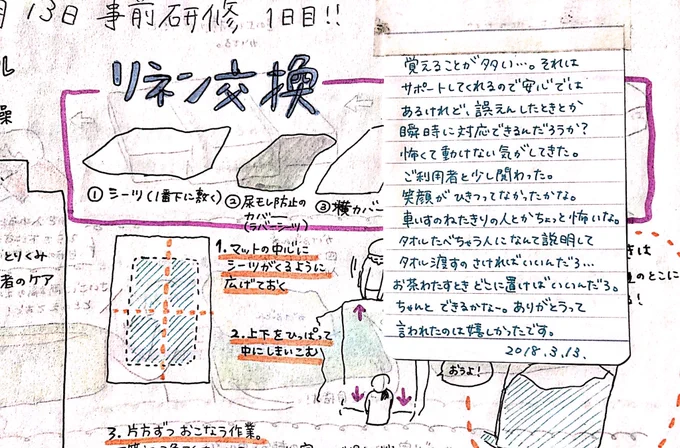 月13日 事前研修 1日目!!
リネン交換
① シーツ(1番下に敷く)
② 尿モレ防止の
カバー
(ラバーシーツ)
③ 横カバー
1. マットの中心に
シーツがくるように
広げておく
2. 上下をひっぱって
中にしまいこむ
3. 片方ずつおこなう作業。
とりくみ
者のケア
覚えることが多い…。それは
サポートしてくれるので安心では
あるけれど、誤えんしたときとか
瞬時に対応できるんだろうか?
怖くて動けない気がしてきた。
ご利用者と少し関わった。
笑顔がひきつってなかったかな。
車いすのねたきりの人とかちょっと怖いな。
タオルたべちゃう人になんて説明して
タオル渡すのさければいいんだろ…
お茶わたすときどこに置けばいいんだろ。
ちゃんとできるかなー。ありがとうって
言われたのは嬉しかったです。
2018.3.13.
きは
のとこに
る!
おうよ!